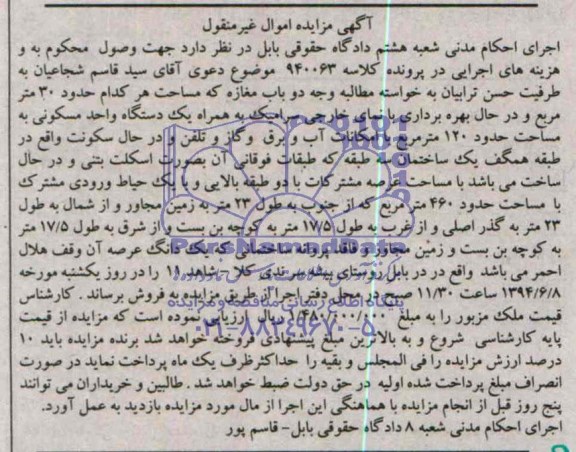 آگهی مزایده اموال غیرمنقول
اجرای احکام مدنی شعبه هشتم دادگاه حقوقی بابل در نظر دارد جهت وصول محکوم به و
هزینه های اجرایی در پرونده کلاسه ۹۴۰۰۶۳ موضوع دعوی آقای سید قاسم شجاعیان به
طرفیت حسن ترابیان به خواسته مطالبه وجه دو باب مغازه که مساحت هر کدام حدود ۳۰ متر
مربع و در حال بهره برداری با نمای خارجی سرامیک به همراه یک دستگاه واحد مسکونی به
مساحت حدود ۱۲۰ مترمربع با امکانات آب و برق و گاز و تلفن و در حال سکونت واقع در
طبقه همگف یک ساختمان سه طبقه که طبقات فوقانی آن بصورت اسکلت بتنی و در حال
ساخت می باشد با مساحت عرصه مشترکات با دو طبقه بالایی و با یک حیاط ورودی مشترک
با مساحت حدود ۴۶۰ متر مربع که از جنوب به طول ۲۳ متر به زمین مجاور و از شمال به طول
۲۳ متر به گذر اصلی و از غرب به طول ۱۷/۵ متر به کوچه بن بست و از شرق به طول ۱۷/۵ متر
به کوچه بن بست و زمین مجاور و فاقد پروانه ساختمانی که یک دانگ عرصه آن وقف هلال
احمر می باشد واقع در در بابل روستای بیشه سر نبش کلا - شاهد ۱۱ را در روز یکشنبه مورخه
۱۳۹۴/۶/۸ ساعت ۱۱/۳۰ صبح در محل دفتر اجرا از طریق مزایده به فروش برساند . کارشناس
قیمت ملک مزبور را به مبلغ ریال ارزیابی نموده است که مزایده از قیمت
پایه کارشناسی شروع و به بالاترین مبلغ پیشنهادی فروخته خواهد شد برنده مزایده باید ۱۰
درصد ارزش مزایده را فی المجلس و بقیه را حداکثرظرف یک ماه پرداخت نماید در صورت
انصراف مبلغ پرداخت شده اولیه در حق دولت ضبط خواهد شد . طالبین و خریداران می توانند
پنج روز قبل از انجام مزایده با هماهنگی این اجرا از مال مورد مزایده بازدید به عمل آورد.
اجرای احکام مدنی شعبه ۸ دادگاه حقوقی بابل- قاسم پور
ParsNamadData
۰۲۱-۸۸۳۴۹۶۷۰-۵